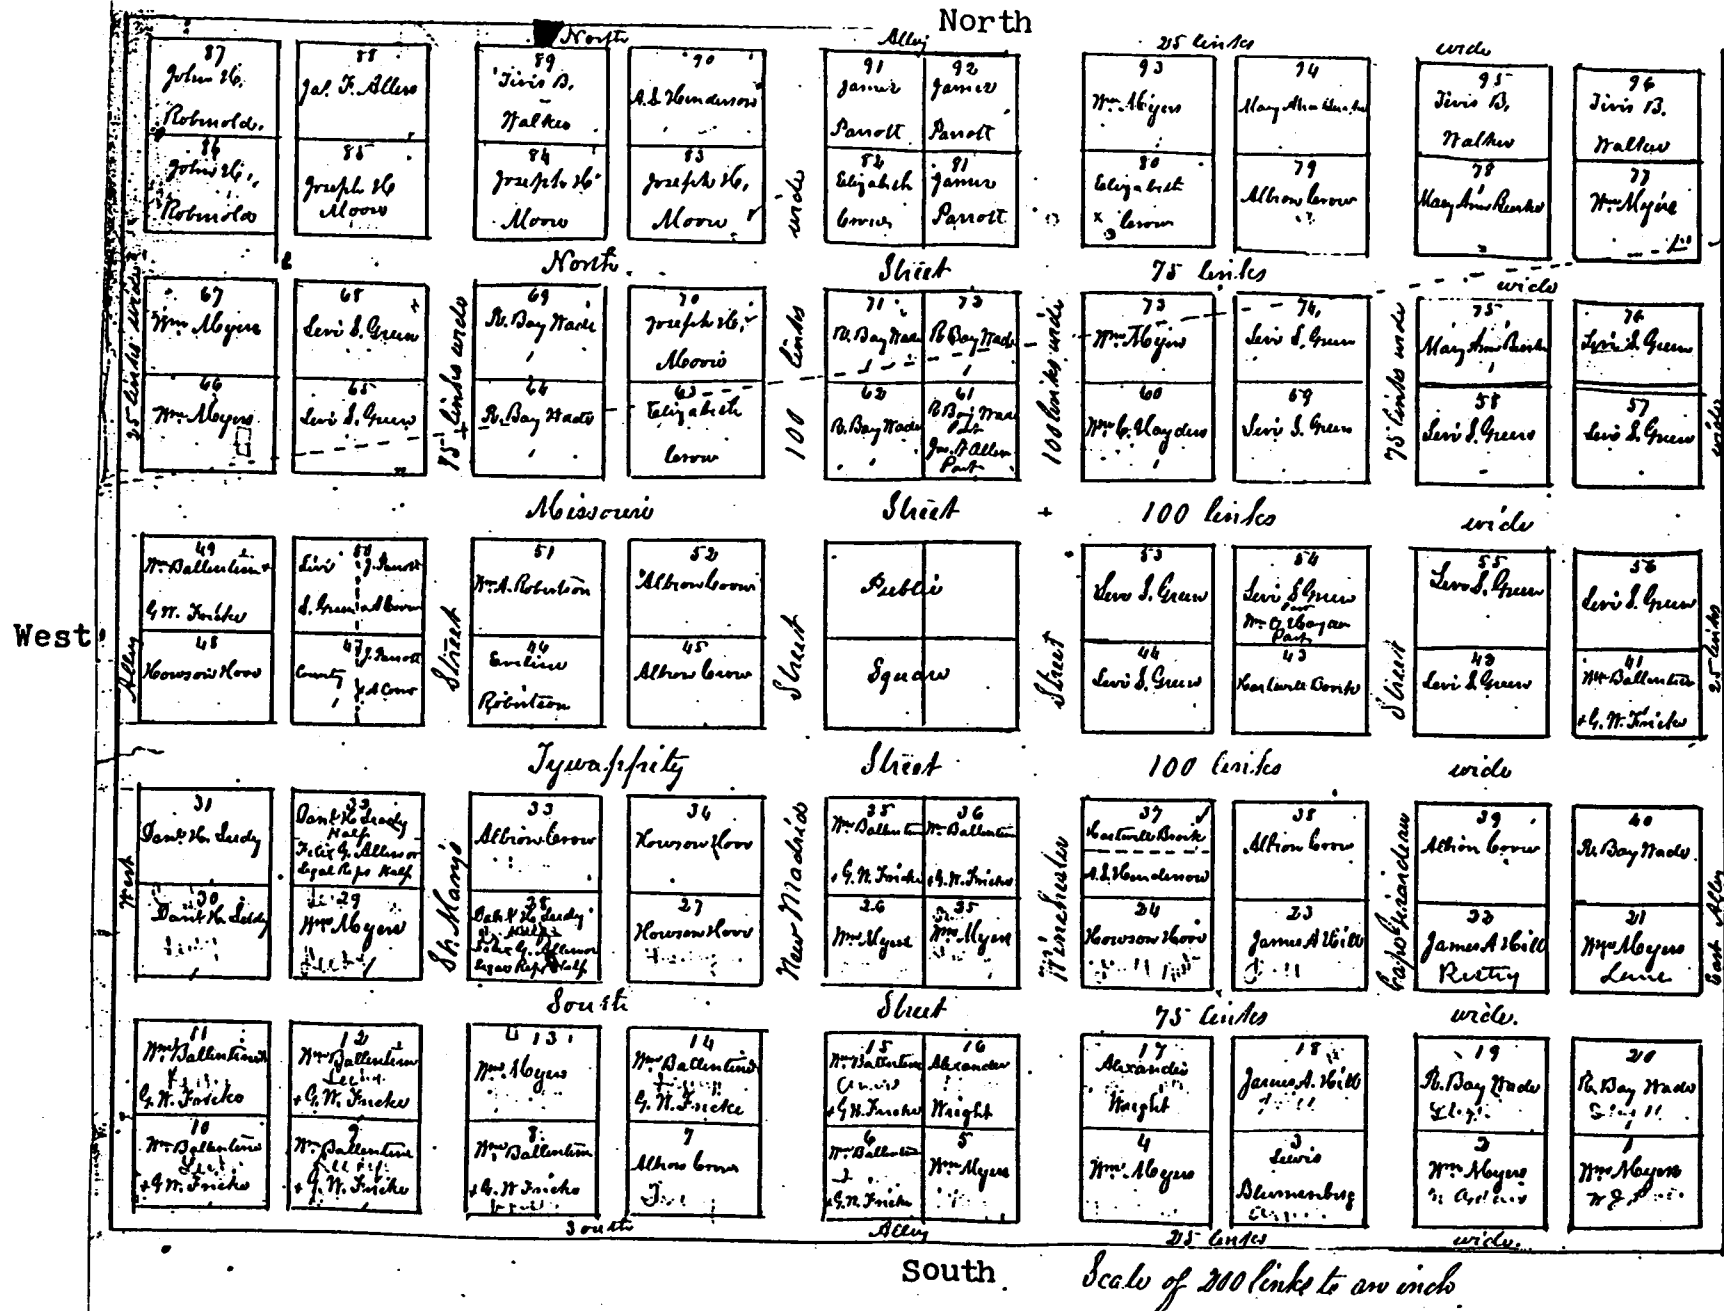 North
North Alley 25 links wide
87
John H.
Robinold.
88
Jas. F. Allen
89
Tivis B.
Walker
90
A.S. Henderson
91
James
Parrott
92
James
Parrott
93
Wm. Meyers
94
Mary Ann
95
Tivis B.
Walker
96
Tivis B.
Walker
86
John H.
Robinold
85
Joseph H
Moore
84
Joseph H
Moore
83
Joseph H.
Moore
82
Elizabeth
Crow
81
James
Parrott
80
Elizabeth
Crow
79
Albion Crow
78
Mary Ann
77
Wm. Meyers
North Street 75 links wide
67
Wm. Meyers
68
Levi S. Green
69
R. Bay Wade
70
Joseph H.
Moore
71
R. Bay Wade
72
R. Bay Wade
73
Wm. Meyers
74
Levi S. Green
75
Mary Ann
76
Levi S. Green
66
Wm. Meyers
65
Levi S. Green
64
R. Bay Wade
63
Elizabeth
Crow
62
R. Bay Wade
61
R. Bay Wade
Part
Jas. F Allen
Part
60
Wm. C. Hayden
59
Levi S. Green
58
Levi S. Green
57
Levi S. Green
Missouri Street 100 links wide
49
Wm Ballentine +
G. W. Fricke
50
Levi
S. Green
J. Parrott
A Crow
51
Wm. A. Robertson
52
Albion Crow
Public
Square
53
Levi S. Green
54
Levi S Green
Part
55
Levi S. Green
56
Levi S. Green
48
Howson Hoov
47
County
J. Parrott
A Crow
46
Eveline
Robertson
45
Albion Crow
44
Levi S. Green
43
Hartwell Brock
42
Levi S. Green
41
Wm Ballentine
+ G. W. Fricke
West
Tywappity Street 100 links wide
31
Danl. H. Leedy
32
Danl H. Leedy
Half
Felix G. Allen or
Legal Reps Half
33
Albion Crow
34
Howson Hoov
35
Wm Ballentine
+ G. W. Fricke
36
Wm Ballentine
+ G. W. Fricke
37
Hartwell Brock
A.S. Henderson
38
Albion Crow
39
Albion Crow
40
R. Bay Wade
30
Danl H. Leedy
29
Wm Meyers
28
Danl H. Leedy
Half
Felix G. Allen or
Legal Reps Half
27
Howson Hoov
26
Wm. Meyers
25
Wm. Meyers
24
Howson Hoov
23
James A Hill
22
James A Hill
21
Wm Meyers
South Street 75 links wide.
11
Wm Ballentine
G. W. Fricke
12
Wm Ballentine
+ G. W. Fricke
13
Wm. Meyers
14
Wm. Ballentine
G. W. Fricke
15
Wm. Ballentine
+ G. W. Fricke
16
Alexander
Wright
17
Alexander
Wright
18
James A. Hill
19
R. Bay Wade
20
R. Bay Wade
10
Wm. Ballentine
+ G. W. Fricke
9
Wm. Ballentine
+ G. W. Fricke
8
Wm. Ballentine
+ G. W. Fricke
7
Albion Crow
6
Wm. Ballentine
+ G. W. Fricke
5
Wm. Meyers
4
Wm. Meyers
3
Lewis
Blumenberg
2
Wm. Meyers
1
Wm Meyers
South Alley 25 links wide.
West Alley 25 links wide
St. Marys Street 75 links wide
New Madrid Street 100 links wide
Winchester Street 100 links wide
Cape Girardeau Street 75 links wide
East Alley 25 links wide
South
Scale of 200 links to an inch